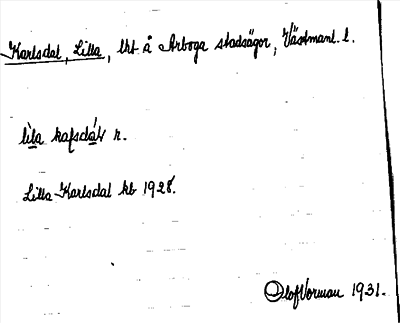 Karlsdal, Lilla, lht å Arboga stadsägor, Västmanl. l.
lìla kaɽsdáɫ n.
Lilla Karlsdal kb 1928.
Olof Vorman 1931.